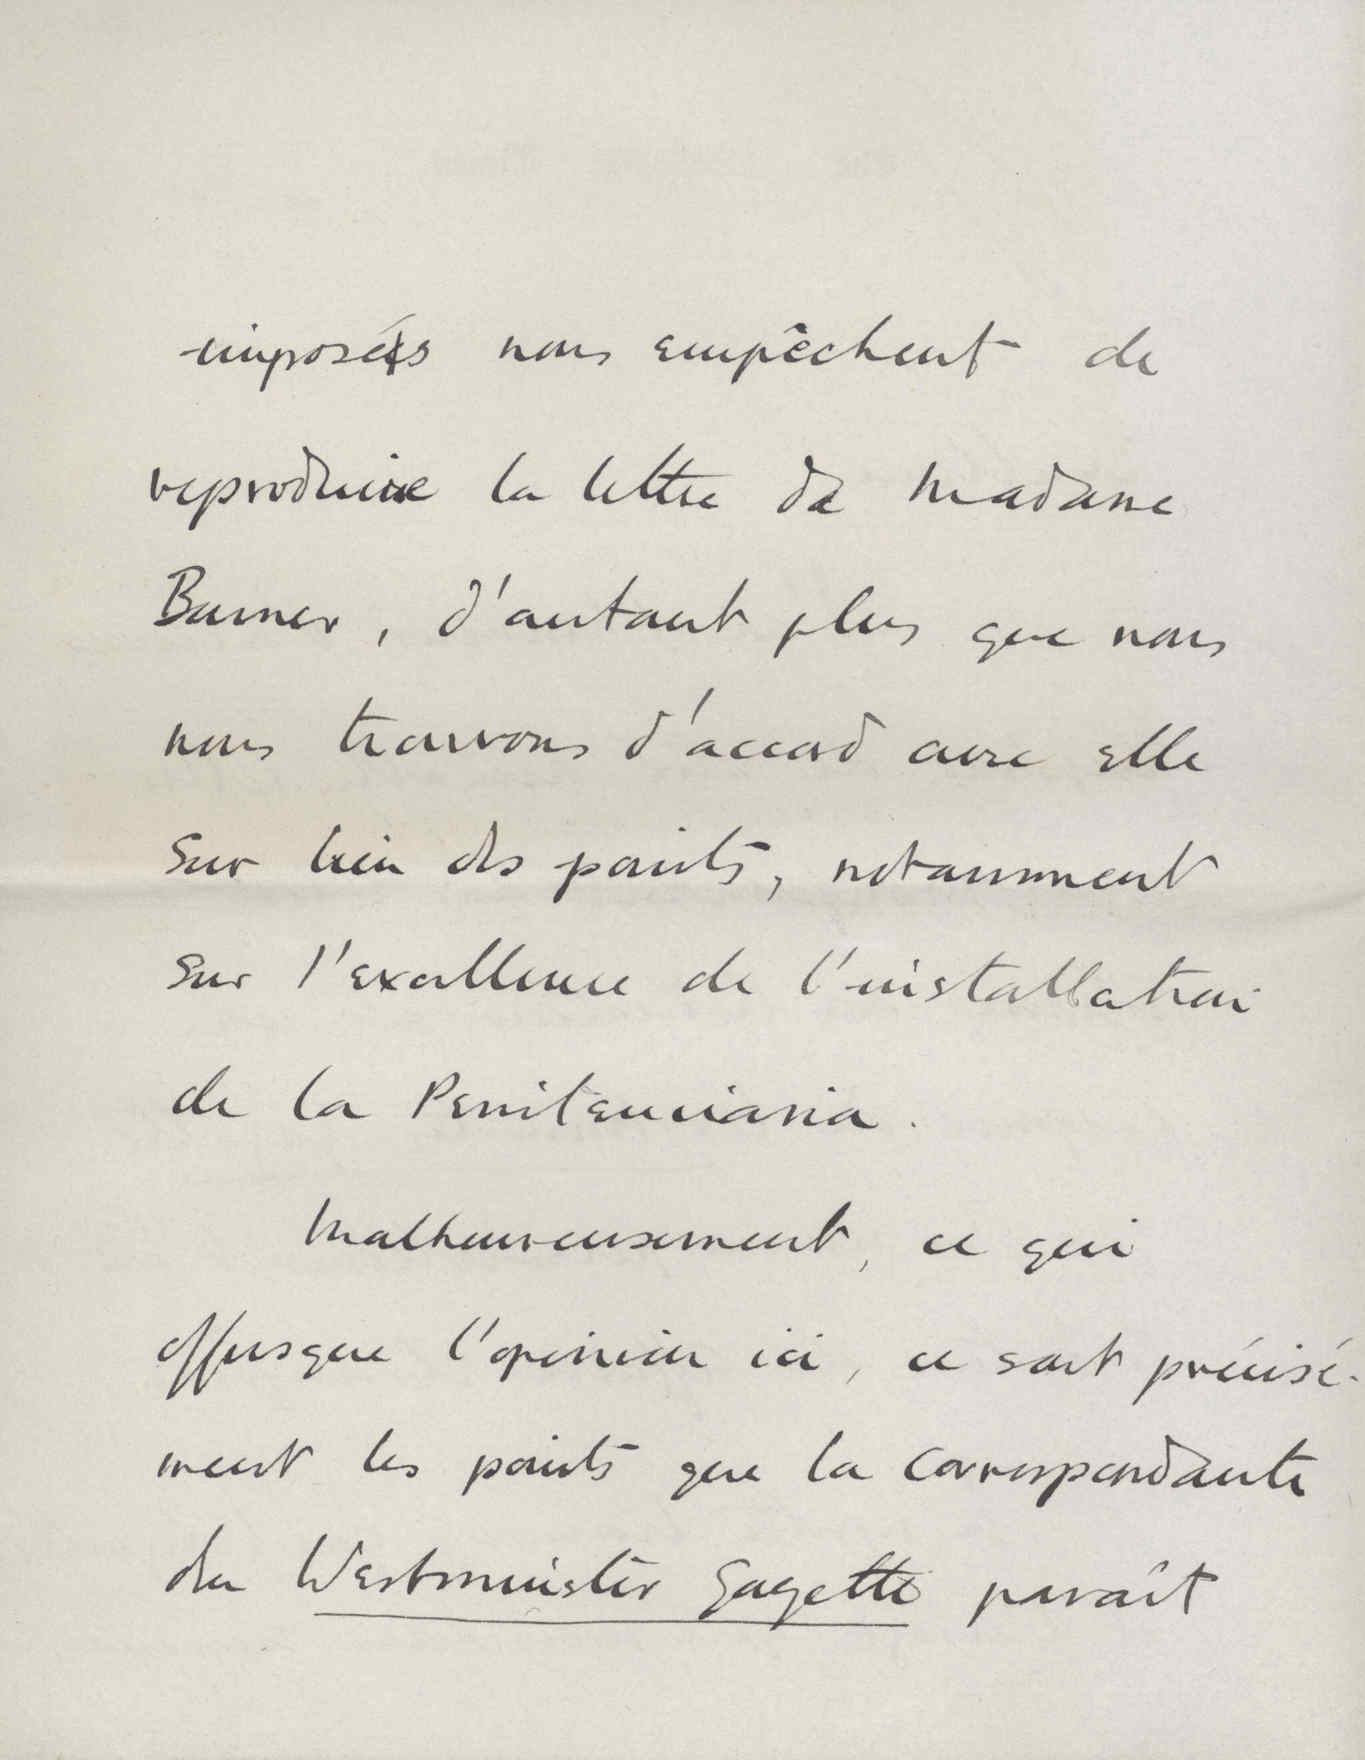 imposés nous empêchent de
reproduire la lettre de Madame
, d'autant plus que nous
nous trouvons d'accord avec elle
sur bien des points, notamment
sur l'excellence de l'installation
de la Penitenciaria.
Malheureusement, ce qui
offusque l'opinion ici, ce sont précisé-
ment les points que la correspondante
du Westminster Gazette paraît